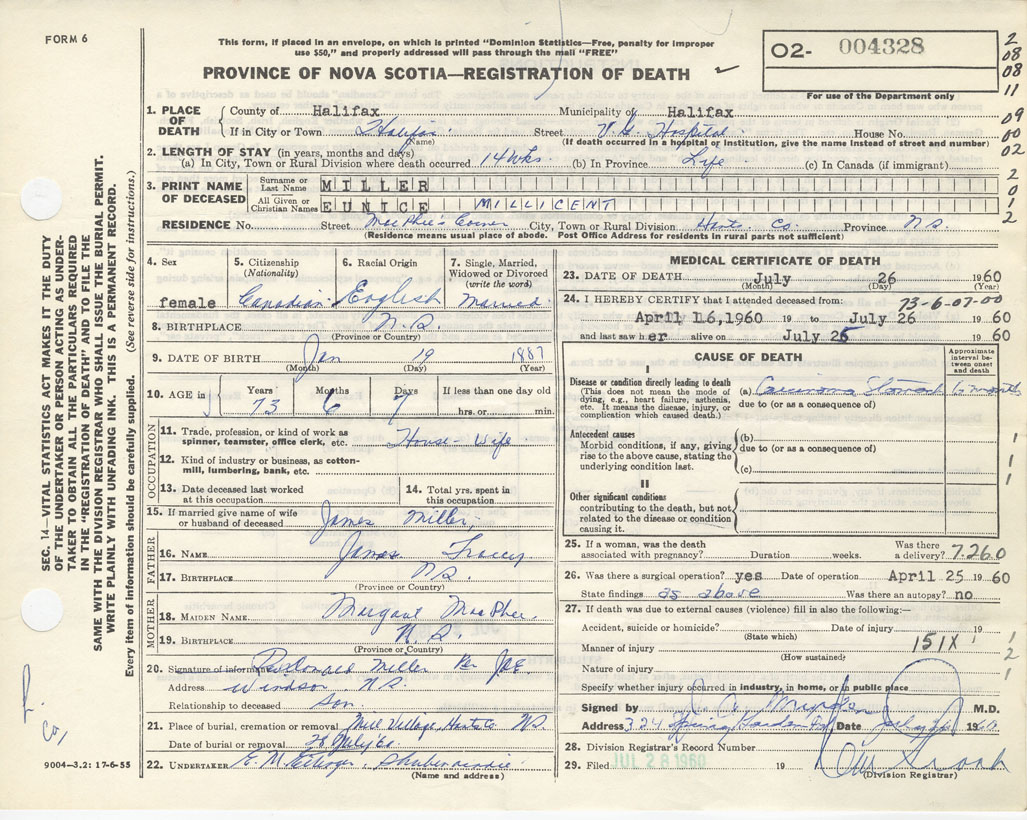 FORM 6
This form, if placed in an envelope, on which is printed "Dominion Statistics—Free, penalty for improper
use $50," and properly addressed will pass through the mail "FREE"
PROVINCE OF NOVA SCOTIA—REGISTRATION OF DEATH
02- 004328
For use of the Department only
2
08
08
11
09
00
02
2
0
1
2
1. PLACE OF DEATH
County of Halifax Municipality of Halifax
If in City or Town Halifax Street V.G. Hospital House No.
(Name) (If death occurred in a hospital or institution, give the name instead of street and number)
2. LENGTH OF STAY (in years, months and days)
(a) In City, Town or Rural Division where death occurred 14 wks. (b) In Province Life (c) In Canada (if immigrant)
3. PRINT NAME OF DECEASED
Surname or Last Name MILLER
All Given or Christian Names EUNICE MILLICENT
RESIDENCE No. Street MacPhee's Corner City, Town or Rural Division Hants. Co. Province N.S.
(Residence means usual place of abode. Post Office Address for residents in rural parts not sufficient)
4. Sex female
5. Citizenship (Nationality) Canadian
6. Racial Origin English
7. Single, Married, Widowed or Divorced (write the word) Married
8. BIRTHPLACE N.S.
(Province or Country)
9. DATE OF BIRTH Jan 19 1887
(Month) (Day) (Year)
10. AGE in Years 73 Months 6 Days 7 If less than one day old hrs. or min.
OCCUPATION
11. Trade, profession, or kind of work as spinner, teamster, office clerk, etc. House-wife
12. Kind of industry or business, as cotton-mill, lumbering, bank, etc.
13. Date deceased last worked at this occupation
14. Total yrs. spent in this occupation
15. If married give name of wife or husband of deceased James Miller
FATHER
16. NAME James Tracey
17. BIRTHPLACE N.S.
(Province or Country)
MOTHER
18. MAIDEN NAME Margaret MacPhee
19. BIRTHPLACE N.S.
(Province or Country)
20. Signature of informant Donald Miller Per
Address Windsor, N.S.
Relationship to deceased Son
21. Place of burial, cremation or removal Mill Village, Hants Co N.S.
Date of burial or removal 28 July '60
22. UNDERTAKER E. M. Shubenacadie
(Name and address)
MEDICAL CERTIFICATE OF DEATH
23. DATE OF DEATH July 26 1960
(Month) (Day) (Year)
24. I HEREBY CERTIFY that I attended deceased from: 73-6-07-00
April 16,1960 19 to July 26 1960
and last saw her alive on July 25 1960
CAUSE OF DEATH
Approximate interval between onset and death
I
Disease or condition directly leading to death (a) Carcinoma Stomach 6 months
(This does not mean the mode of dying, e.g., heart failure, asthenia, etc. It means the disease, injury, or complication which caused death.)
due to (or as a consequence of)
Antecedent causes
Morbid conditions, if any, giving rise to the above cause, stating the underlying condition last.
(b)
due to (or as a consequence of)
(c)
II
Other significant conditions
contributing to the death, but not related to the disease or condition causing it.
1
1
1
25. If a woman, was the death associated with pregnancy? Duration weeks. Was there a delivery? 7.260
26. Was there a surgical operation? yes Date of operation April 25 1960
State findings as above Was there an autopsy? no
27. If death was due to external causes (violence) fill in also the following:—
Accident, suicide or homicide? Date of injury 19
(State which)
Manner of injury 151X
(How sustained)
Nature of injury
1
2
1
Specify whether injury occurred in industry, in home, or in public place
Signed by M.D.
Address 324 Spring Garden Rd Date 1960
28. Division Registrar's Record Number
29. Filed JUL 28 1960 19
(Division Registrar)
SEC. 14—VITAL STATISTICS ACT MAKES IT THE DUTY
OF THE UNDERTAKER OR PERSON ACTING AS UNDER-
TAKER TO OBTAIN ALL THE PARTICULARS REQUIRED
IN THE "REGISTRATION OF DEATH" AND TO FILE THE
SAME WITH THE DIVISION REGISTRAR WHO SHALL ISSUE THE BURIAL PERMIT.
WRITE PLAINLY WITH UNFADING INK. THIS IS A PERMANENT RECORD.
Every item of information should be carefully supplied. (See reverse side for instructions.)
9004—3.2: 17-6-55